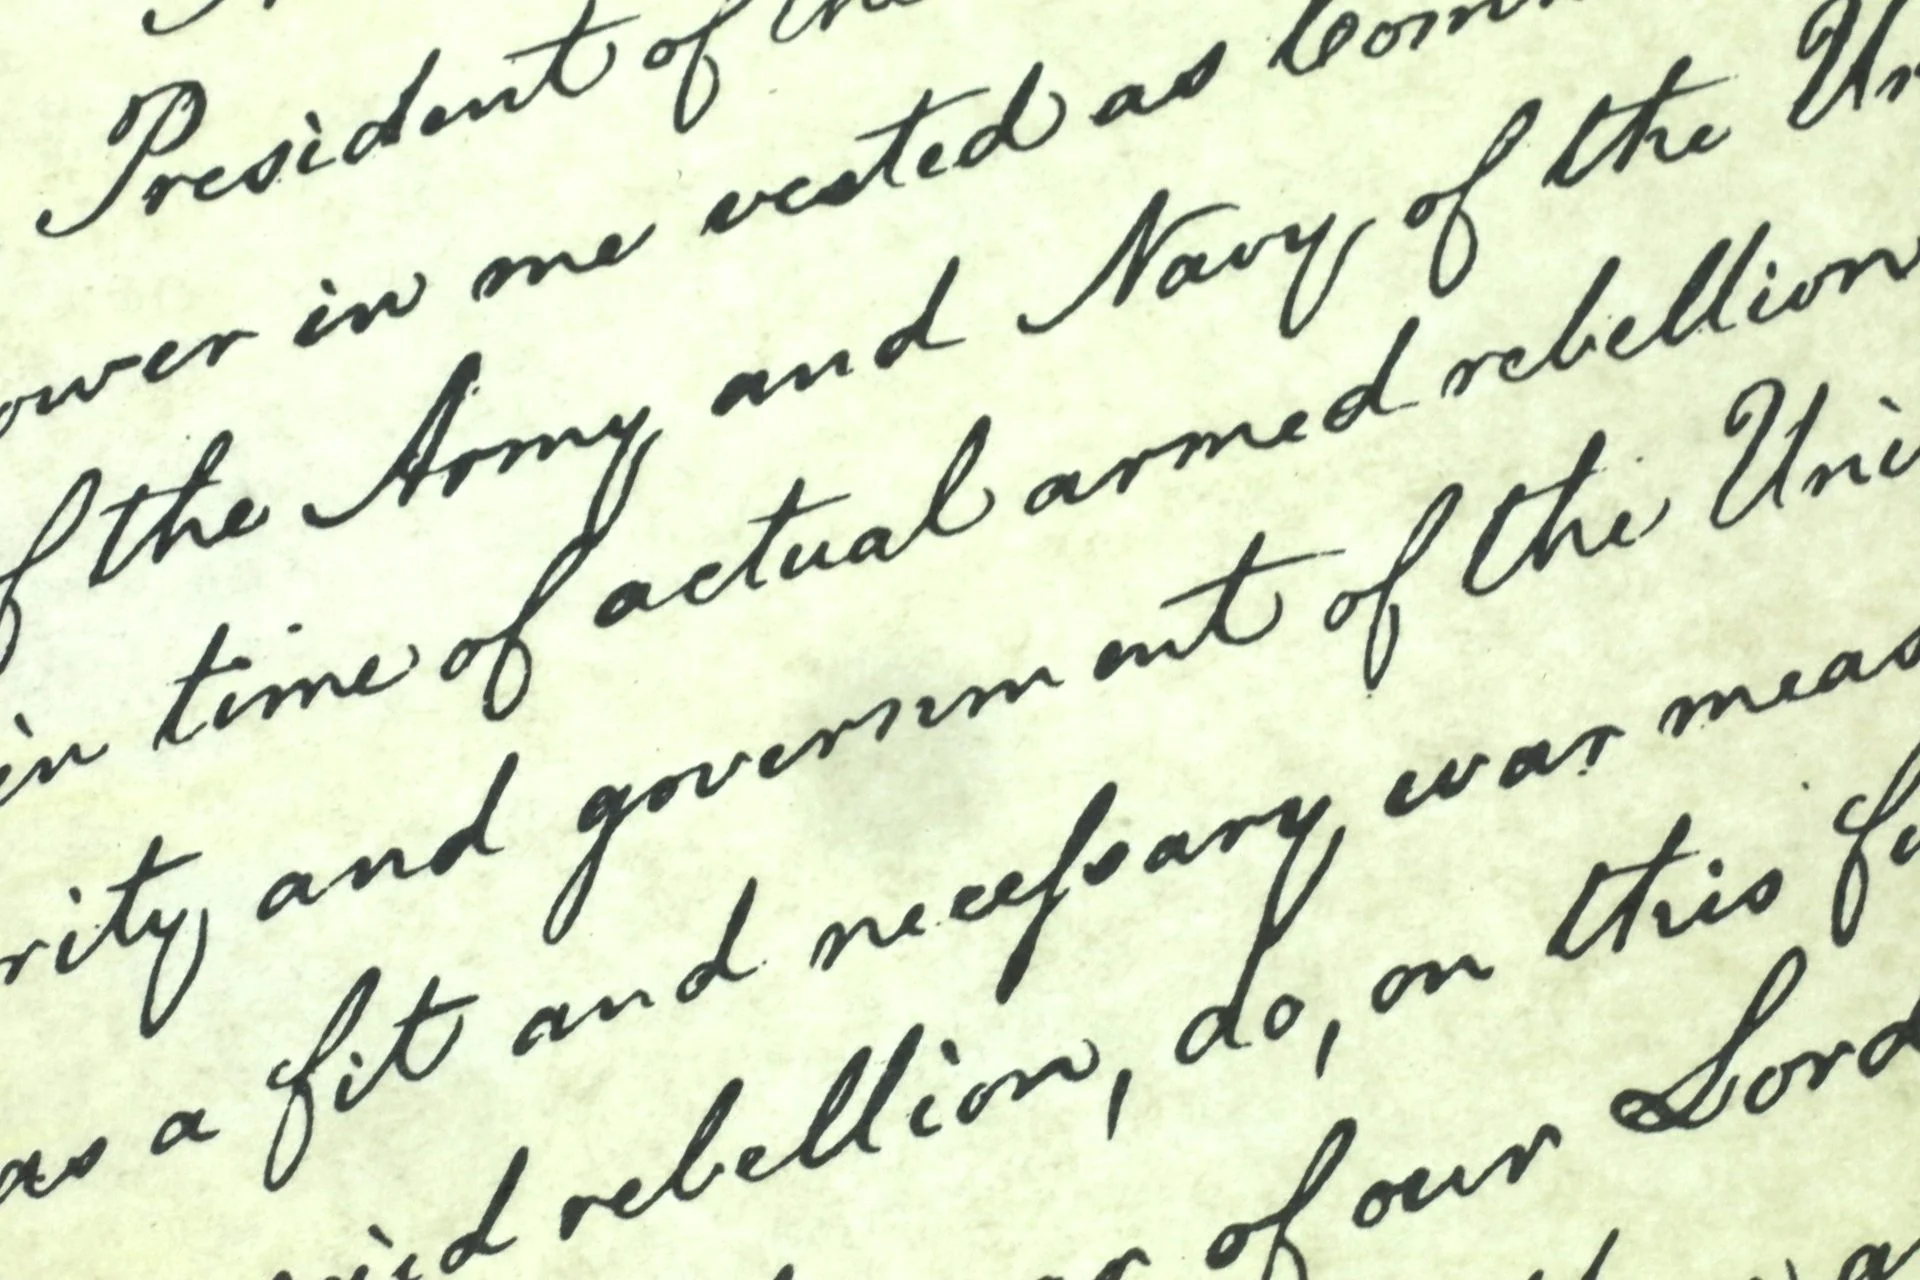 President of the
ower in me vested as Comm
f the Army and Navy of the Un
in time of actual armed rebellion
rity and government of the Uni
as a fit and necessary war meas
said rebellion, do, on this fi
of our Lord